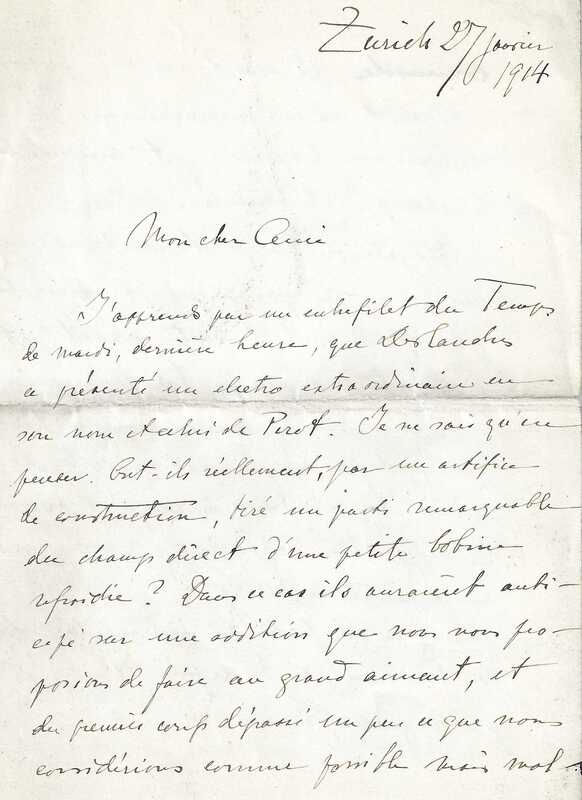 Zurich 27 janvier
1914
Mon cher Ami
J'apprends par un entrefilet du Temps
de mardi, dernière heure, que Deslandres
a présenté un electro extraordinaire en
son nom et celui de Perot. Je ne sais qu'en
penser. Ont-ils réellement, par un artifice
de construction, tiré un parti remarquable
du champ direct d'une petite bobine
refroidie ? Dans ce cas ils auraient anti-
cipé sur une addition que nous nous pro-
posions de faire au grand aimant, et
du premier coup dépassé un peu ce que nous
considérions comme possible mais mal-